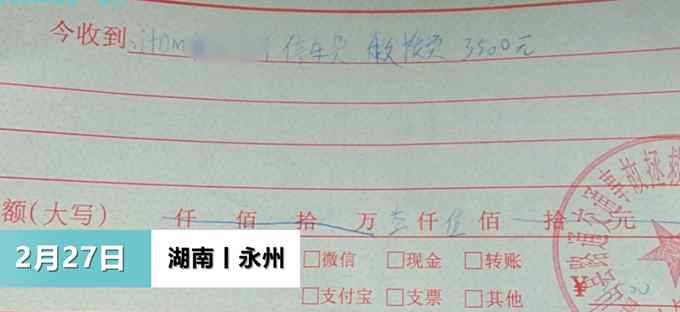 今收到 停车费 救援费 3500元
额(大写) 仟 佰 拾 万 叁仟 伍佰 拾 元
2月27日 湖南丨永州
□微信 □现金 □转账
□支付宝 □支票 □其他
3500